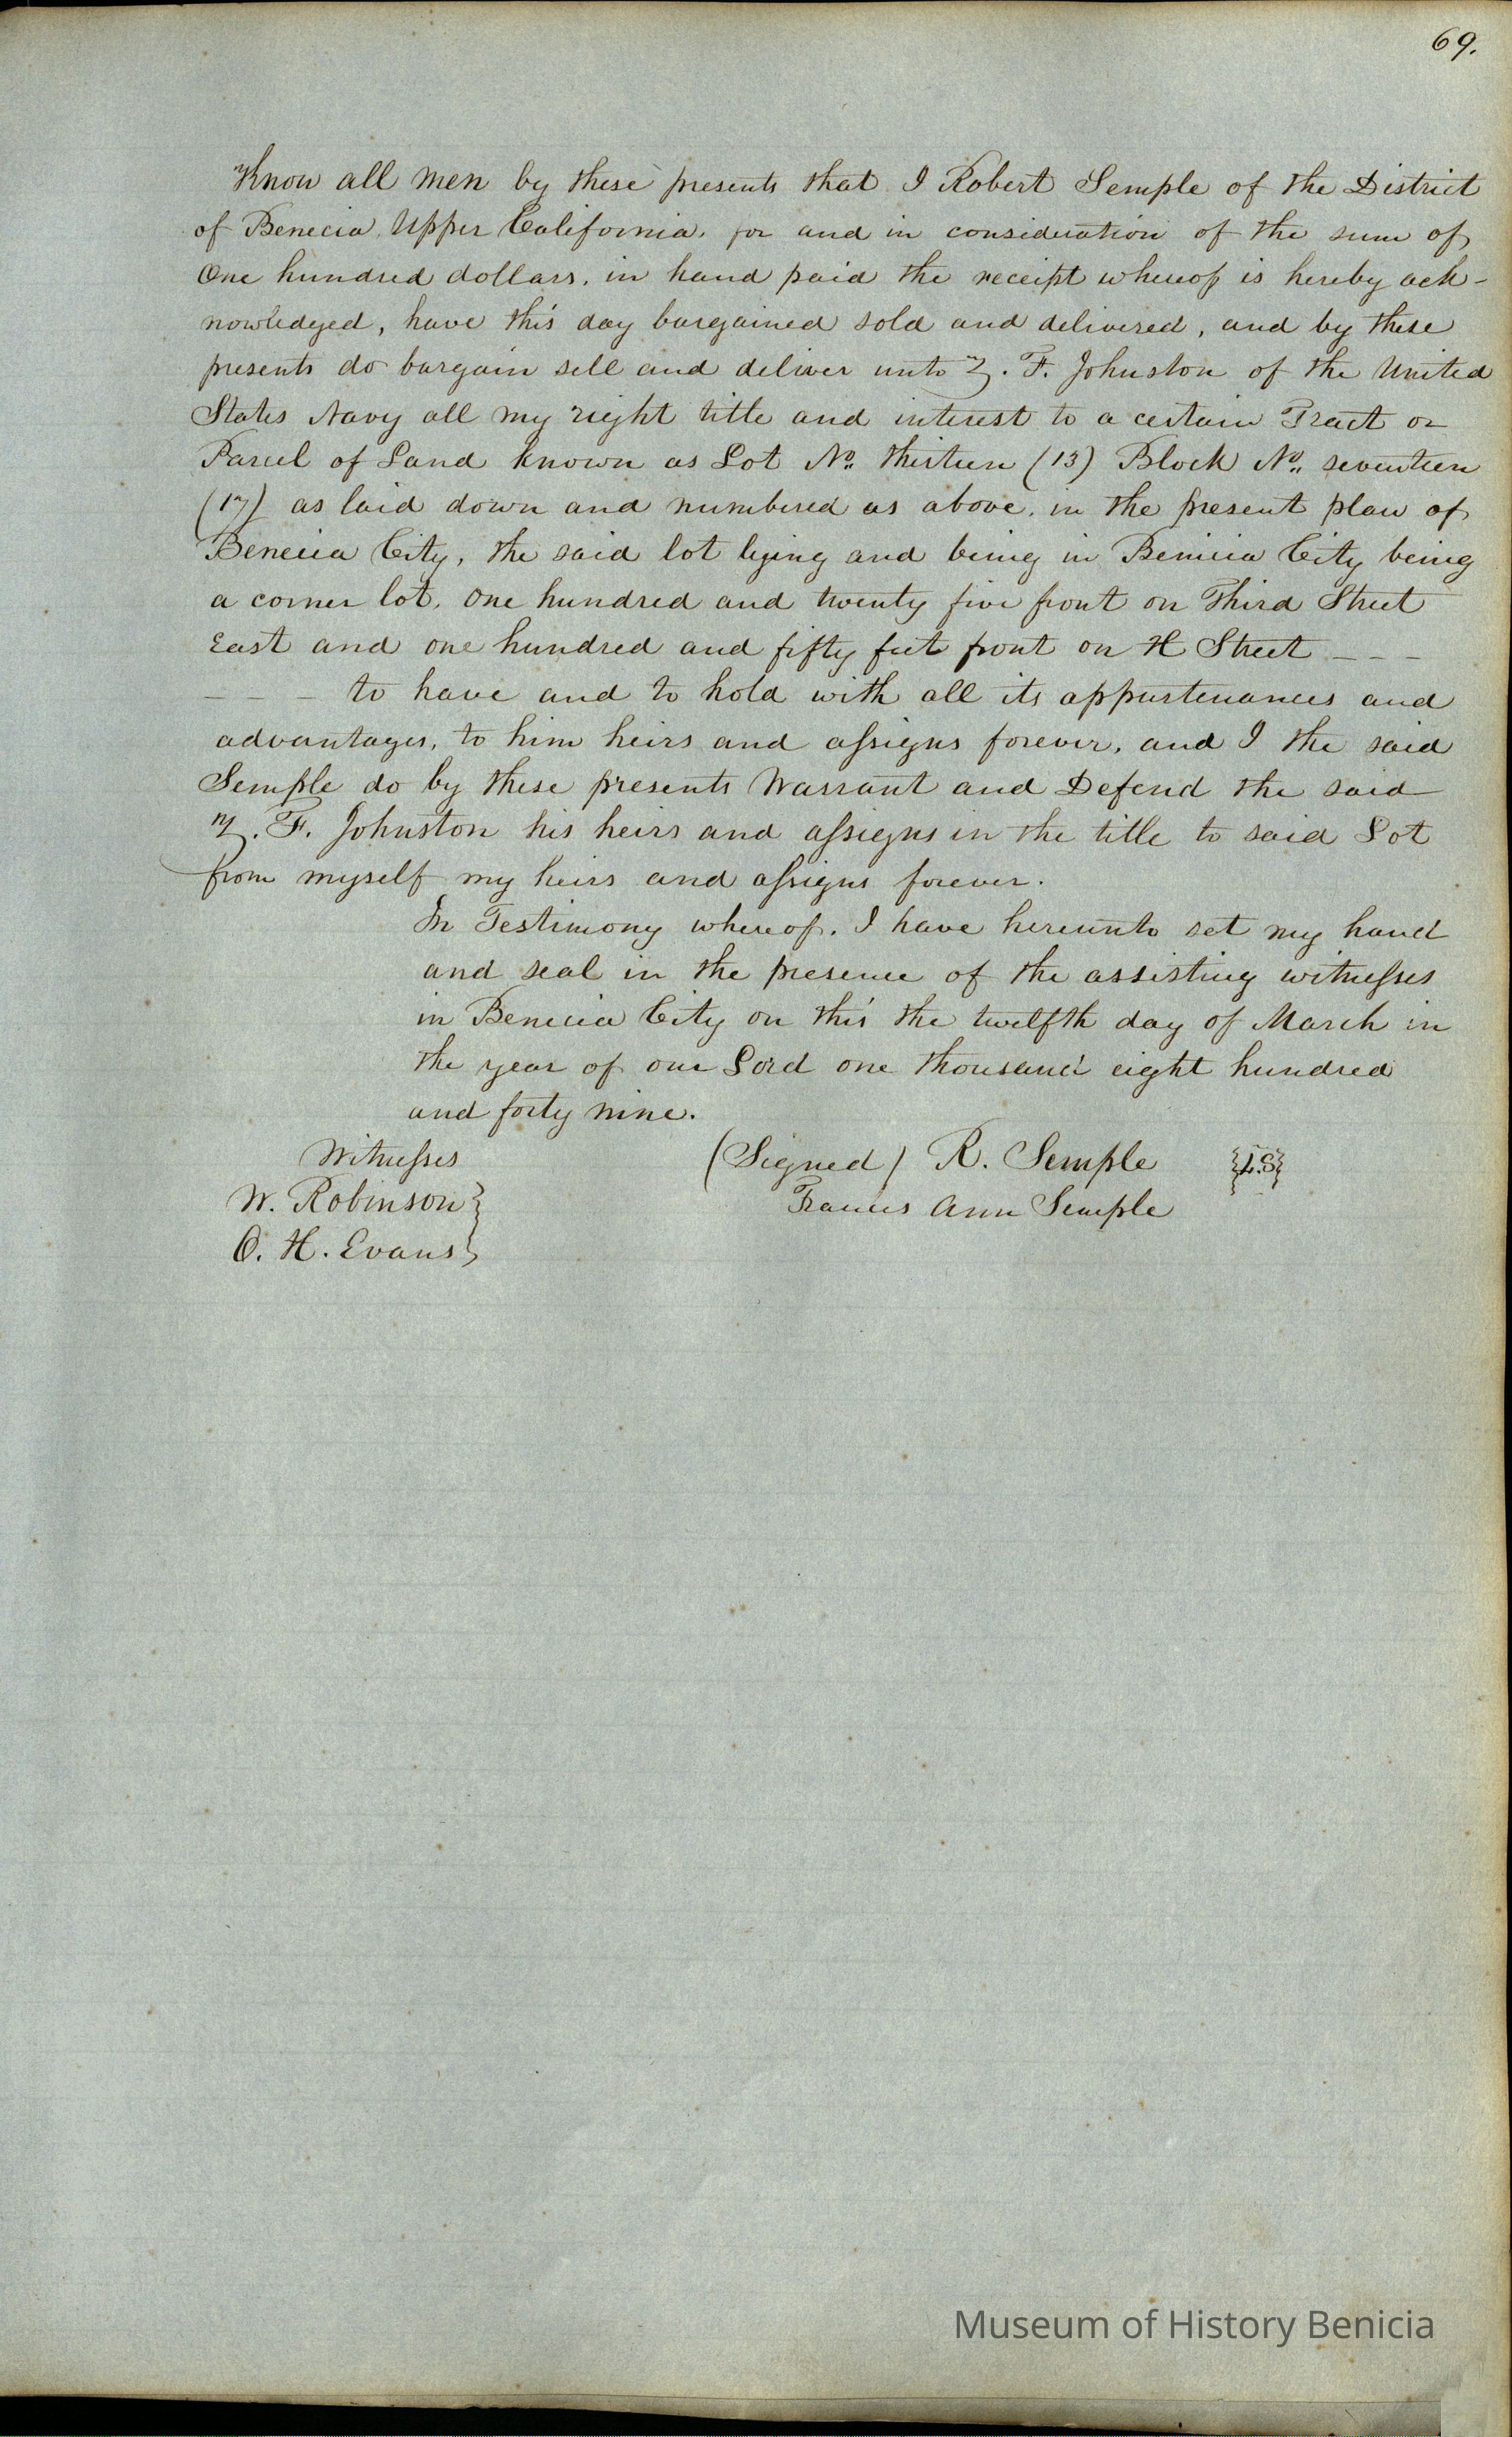 69.
Know all men by these presents that I Robert Semple of the District
of Benecia Upper California, for and in consideration of the sum of
One hundred dollars, in hand paid the receipt whereof is hereby ack-
nowledged, have this day bargained sold and delivered, and by these
presents do bargain sell and deliver unto Z. F. Johnston of the United
States Navy all my right title and interest to a certain Tract or
Parcel of Land known as Lot No. thirteen (13) Block No. seventeen
(17) as laid down and numbered as above, in the present plan of
Benecia City, the said lot lying and being in Benicia City being
a corner lot, One hundred and twenty five front on Third Street
East and one hundred and fifty feet front on H Street - - -
- - - to have and to hold with all its appurtenances and
advantages, to him heirs and assigns forever, and I the said
Semple do by these presents Warrant and Defend the said
Z. F. Johnston his heirs and assigns in the title to said Lot
from myself my heirs and assigns forever.
In Testimony whereof, I have hereunto set my hand
and seal in the presence of the assisting witnesses
in Benecia City on this the twelfth day of March in
the year of our Lord one thousand eight hundred
and forty nine.
Witnesses (Signed) R. Semple {L.S}
W. Robinson} Frances Ann Semple
O. H. Evans}
Museum of History Benicia